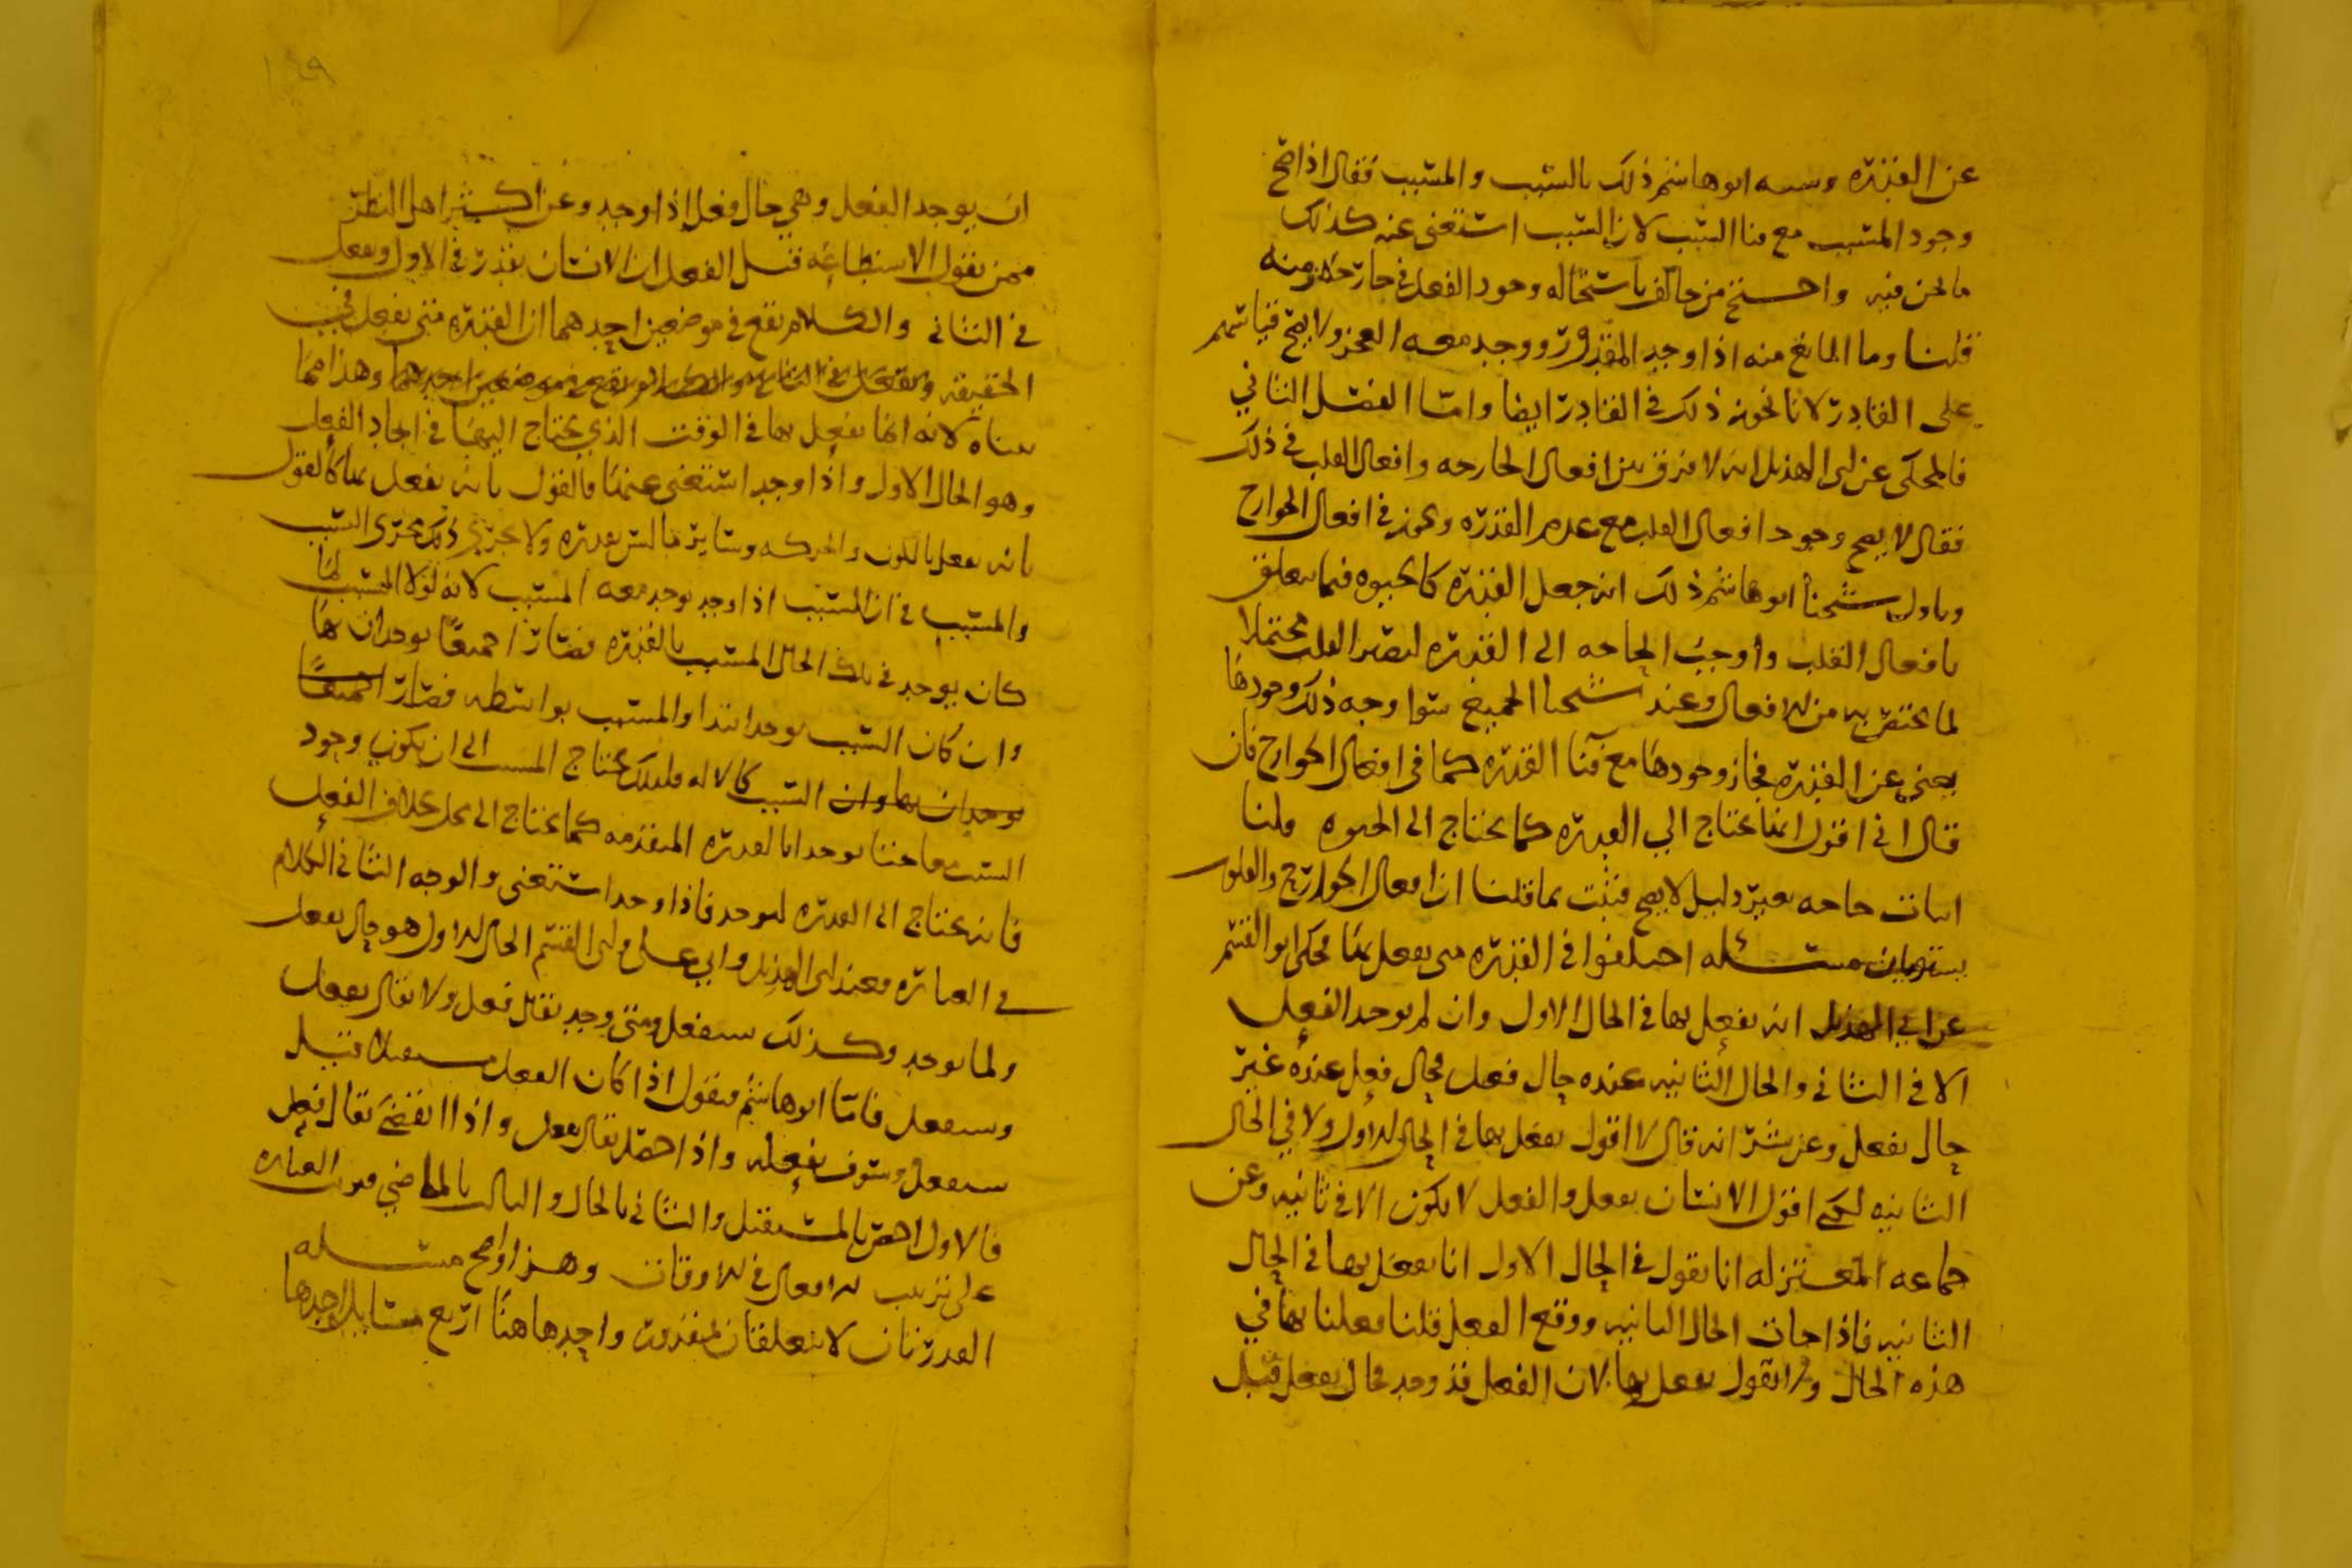 عن القدره وشبه ابو هاشم ذلك بالسبب والمسبب فقال اذا صح
وجود المسبب مع فنا السبب لان السبب استغنى عنه كذلك
ما نحن فيه واحتج من خالف باستحاله وجود الفعل في جارحه زمنه
قلنا وما المانع منه اذا وجد المقدور ووجد معه العجز ولا يصح قياسهم
على القادر لانا نجوز ذلك في القادر ايضا واما الفصل الثاني
فالمحكى عن ابى الهذيل انه لا فرق بين افعال الجارحه وافعال القلب في ذلك
فقال لا يصح وجود افعال القلب مع عدم القدره ويجوز في افعال الجوارح
وتاول شيخنا ابو هاشم ذلك انه جعل القدره كالحيوه فيما يتعلق
بافعال القلب واوجب الحاجه الى القدره ليصير القلب محتملا
لما يختص به من الافعال وعند شيخنا الجميع سوا وجه ذلك وجودها
يغنى عن القدره فجاز وجودها مع فنا القدره كما في افعال الجوارح فان
قال انى اقول انها تحتاج الي القدره كما تحتاج الى الحيوه قلنا
اثبات حاجه بغير دليل لا يصح فثبت بما قلنا ان افعال الجوارح والقلوب
يستويان مسئله اختلفوا في القدره متى يفعل بها فحكى ابو القسم
عن ابي الهذيل انه يفعل بها في الحال الاول وان لم يوجد الفعل
الا في الثاني والحال الثانيه عنده حال فعل فحال فعل عنده غير
حال يفعل وعن بشر انه قال لا اقول يفعل بها في الحال الاول ولا في الحال
الثانيه لكنى اقول الانسان يفعل والفعل لا يكون الا في ثانيه وعن
جماعه المعتزله انا نقول في الحال الاول انا نفعل بها في الحال
الثانيه فاذا جات الحال الثانيه ووقع الفعل قلنا فعلنا بها في
هذه الحال ولا نقول يفعل بها لان الفعل قد وجد فحال يفعل قبل
١٤٩
ان يوجد الفعل وهي حال فعل اذا وجد وعن اكثر اهل النظر
ممن يقول الاستطاعه قبل الفعل ان الانسان يقدر في الاول ويفعل
في الثاني والكلام يقع في موضعين احدهما ان القدره متى يفعل بها في
الحقيقه وهذا مما
بيناه لانه انما يفعل بها في الوقت الذي يحتاج اليها في ايجاد الفعل
وهو الحال الاول واذا وجد استغنى عنها فالقول بانه يفعل بها كالقول
بانه يفعل باللون والحركه وساير ما ليس بقدره ولا يجرى ذلك مجرى السبب
والمسبب في ان السبب اذا وجد يوجد معه المسبب لانه لولا السبب لما
كان يوجد في تلك الحال المسبب بالقدره فصارا جميعا يوجدان بها
وان كان السبب يوجد ابتدا والمسبب بواسطه فصارا جميعا
يوجدان بها وان السبب كالاله فلذلك يحتاج المسبب الى ان يكون وجود
السبب معا حتى يوجدا بالقدره المتقدمه كما يحتاج الى محل بخلاف الفعل
فانه يحتاج الى القدره ليوجد فاذا وجد استغنى والوجه الثاني الكلام
في العباره فعند ابى الهذيل وابي على وابى القسم الحال الاول هو حال يفعل
ولما يوجد وكذلك سيفعل ومتى وجد يقال فعل ولا يقال يفعل
وسيفعل فاما ابو هاشم فيقول اذا كان الفعل مستقبلا قيل
سيفعل وسوف يفعله واذا حصل يقال يفعل واذا انقضى يقال فعل
فالاول اخص بالمستقبل والثاني بالحال والثالث بالماضي فهى العباره
على ترتيب الافعال في الاوقات وهذا واضح مسئله
القدرتان لا يتعلقان بمقدور واحد هاهنا اربع مسايل احدها